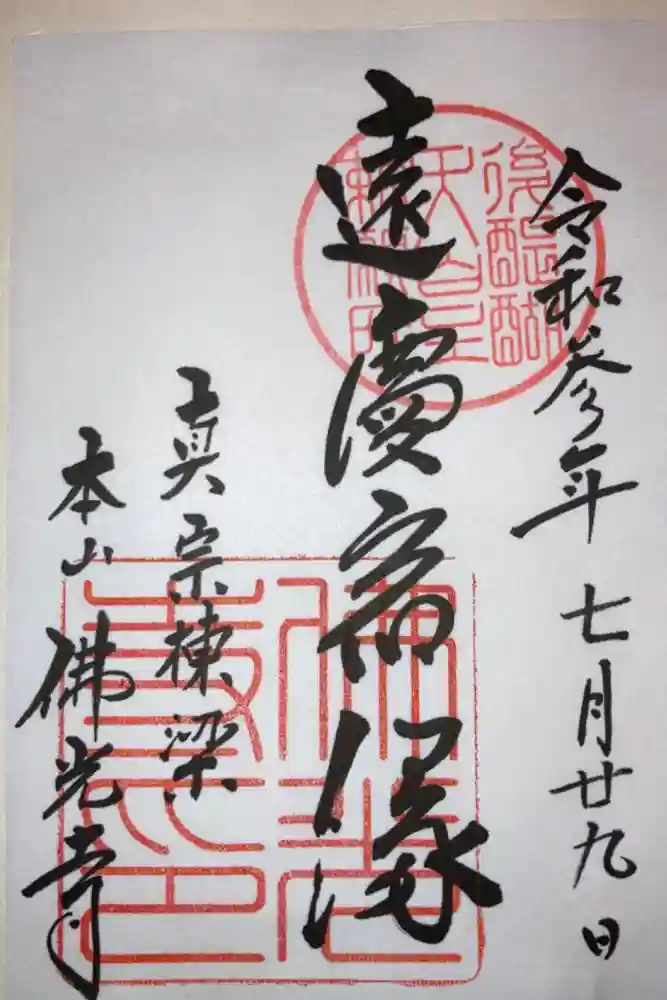 令和参年七月廿九日
後醍醐
天皇
勅願所
遠慶宿縁
真宗棟梁
本山佛光寺